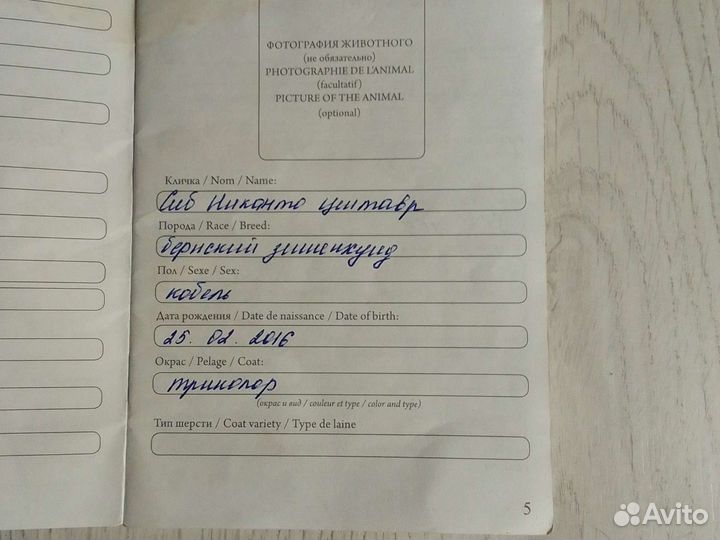 ФОТОГРАФИЯ ЖИВОТНОГО
(не обязательно)
PHOTOGRAPHIE DE L'ANIMAL
(facultatif)
PICTURE OF THE ANIMAL
(optional)
Кличка / Nom / Name:
Сиб Никанто
Порода / Race / Breed:
бернский зинненхунд
Пол / Sexe / Sex:
кобель
Дата рождения / Date de naissance / Date of birth:
25. 02. 2016
Окрас / Pelage / Coat:
триколор
(окрас и вид / couleur et type / color and type)
Тип шерсти / Coat variety / Type de laine
5
Avito